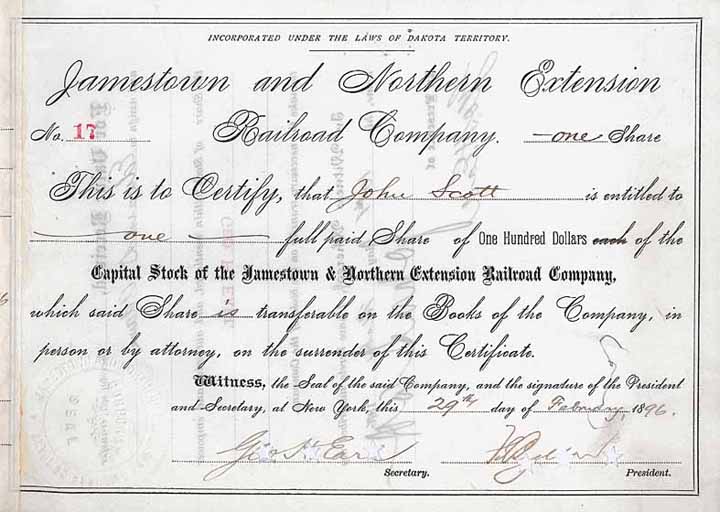 INCORPORATED UNDER THE LAWS OF DAKOTA TERRITORY.
Jamestown and Northern Extension
No. 17 Railroad Company. one Share
This is to Certify, that John Scott is entitled to
one full paid Share of One Hundred Dollars each of the
Capital Stock of the Jamestown & Northern Extension Railroad Company,
which said Share is transferable on the Books of the Company, in
person or by attorney, on the surrender of this Certificate.
Witness, the Seal of the said Company, and the signature of the President
and Secretary, at New York, this 29th day of February, 1896.
Secretary. President.